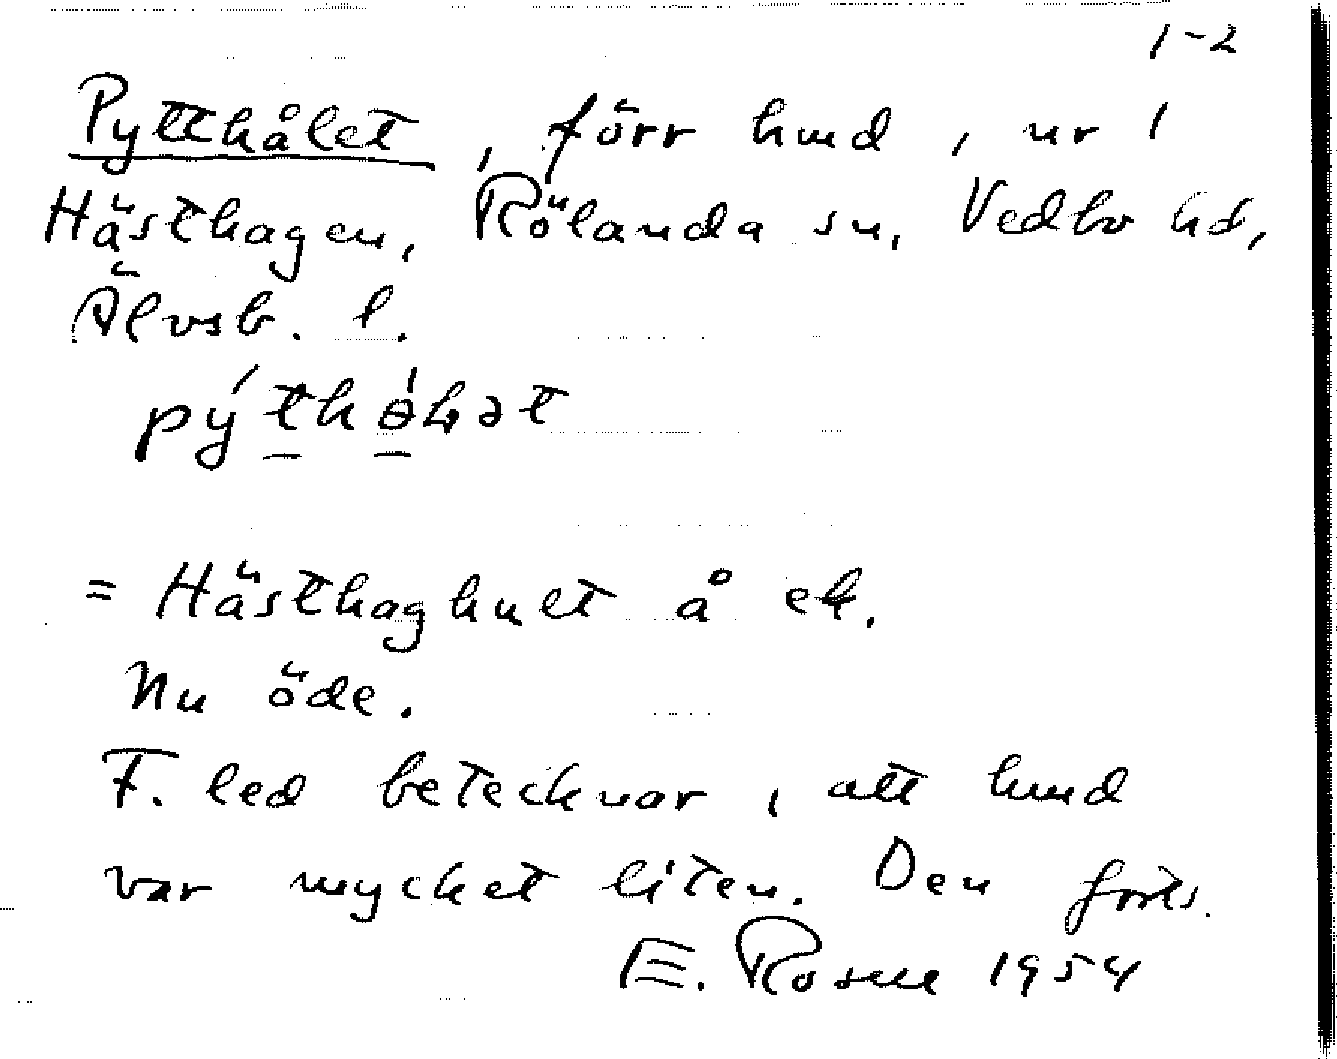 1-2
Pytthålet, förr hmd, nr 1
Hästhagen, Rölanda sn, Vedbo hd,
Älvsb. l.
= Hästhaghult å ek.
Nu öde.
F. led betecknar, att hmd
var mycket liten. Den forts.
E. Rosell 1954